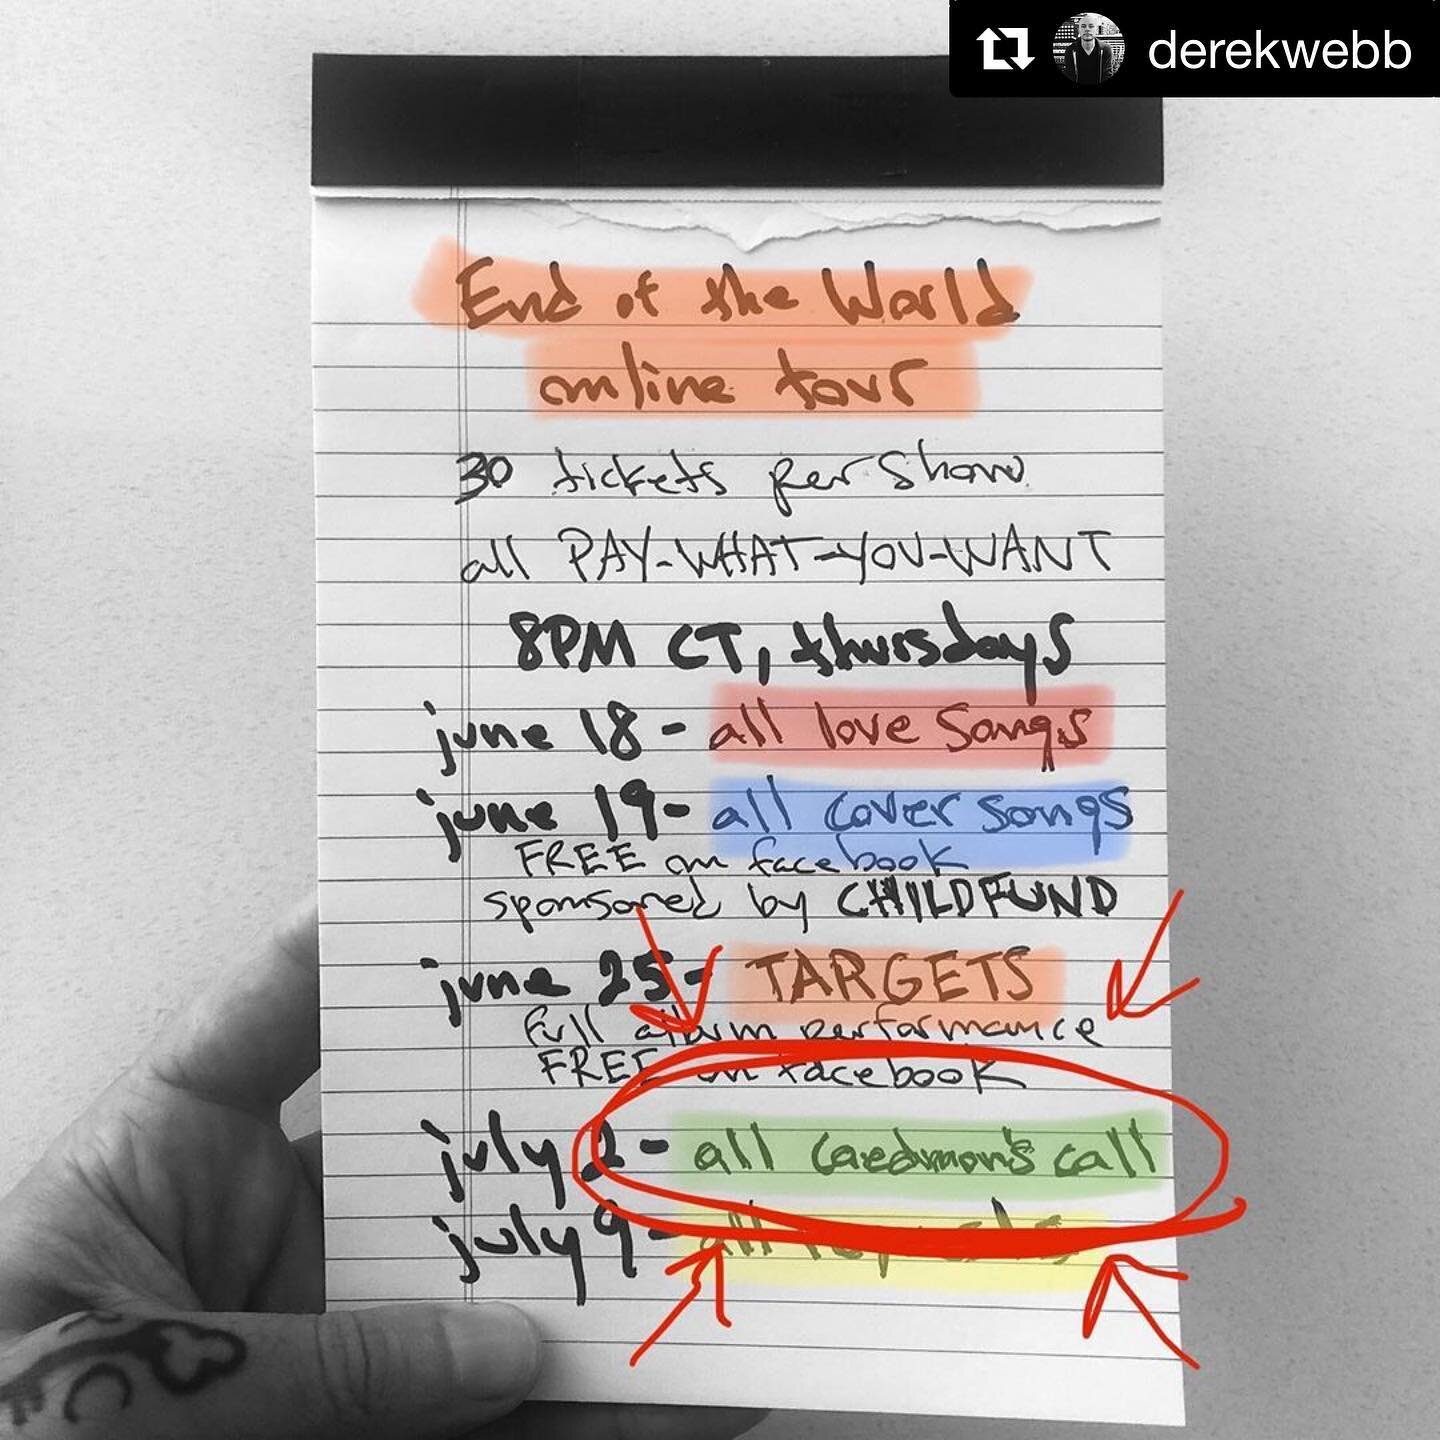 derekwebb
End of the World
online tour
30 tickets per show
all PAY-WHAT-YOU-WANT
8PM CT, thursdays
june 18 - all love songs
june 19 - all cover songs
FREE on facebook
sponsored by CHILDFUND
june 25 - TARGETS
full album performance
FREE on facebook
july 2 - all caedmon's call
july 9 - all